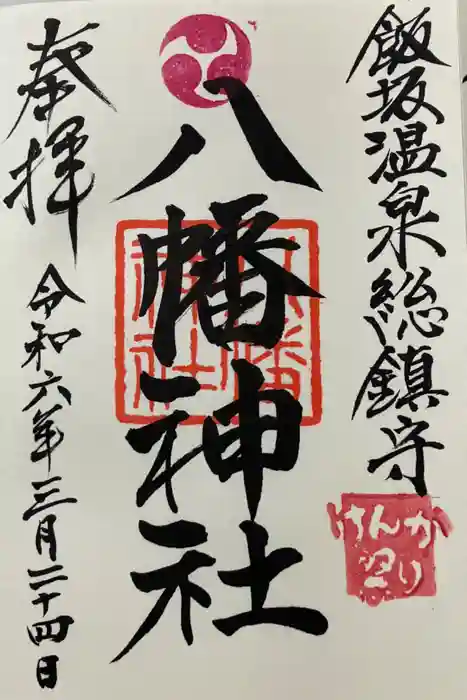 飯坂温泉総鎮守
けんか祭り
八幡神社
八幡神社
奉拝
令和六年三月二十四日